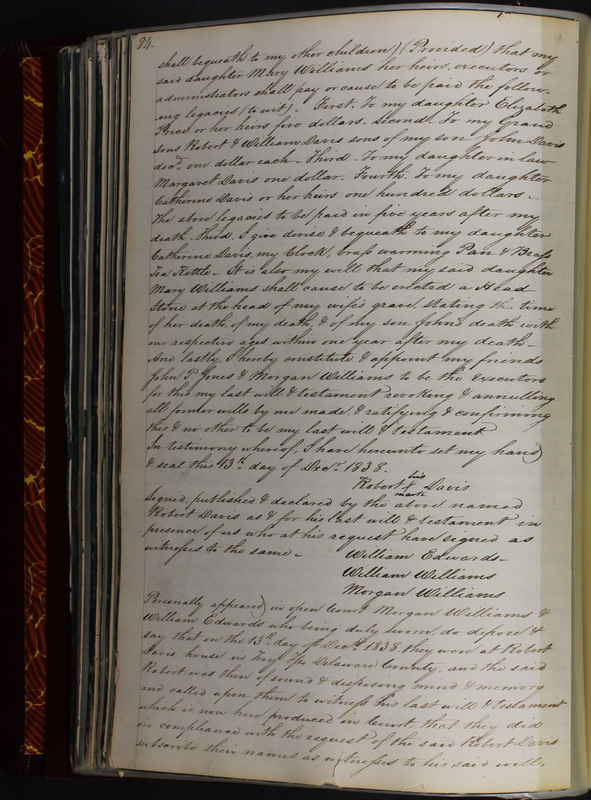 84.
shall bequeath to my other children) (Provided) that my
said daughter Mary Williams her heirs, executors or
administrators shall pay or cause to be paid the follow-
ing legacies (to wit). First. To my daughter Elizabeth
Price or her heirs five dollars. Second. To my Grand
sons Robert & William Davis sons of my son John Davis
decd. one dollar each - Third. To my daughter in law
Margaret Davis one dollar. Fourth. To my daughter
Catherine Davis or her heirs one hundred dollars -
The above legacies to be paid in five years after my
death. Third. I give devise & bequeath to my daughter
Catherine Davis, my Clock, brass warming Pan & Brass
Tea Kettle - It is also my will that my said daughter
Mary Williams shall cause to be erected a Head
Stone at the head of my wife's grave, stating the time
of her death, of my death, & of my son John's death with
our respective ages within one year after my death -
And lastly, I hereby constitute & appoint my friends
John P. Jones & Morgan Williams to be the executors
for this my last will & testament revoking & annulling
all former wills by me made, & ratifying & confirming
this & no other to be my last will & testament
In testimony whereof, I have hereunto set my hand
& seal this 13th day of Decr 1838.
Robert his X mark Davis
Signed, published & declared by the above named
Robert Davis as & for his last will & testament in
presence of us who at his request have signed as
witnesses to the same -
William Edwards -
William Williams
Morgan Williams
Personally appeared in open Court Morgan Williams &
William Edwards who being duly sworn, do depose &
say that on the 13th day of Decr 1838, they were at Robert
Davis house in Troy Tp Delaware County, and the said
Robert was then of sound & disposing mind & memory
and called upon them to witness his last will & testament
which is now here produced in Court, that they did
in compliance with the request of the said Robert Davis
subscribe their names as witnesses to his said will,